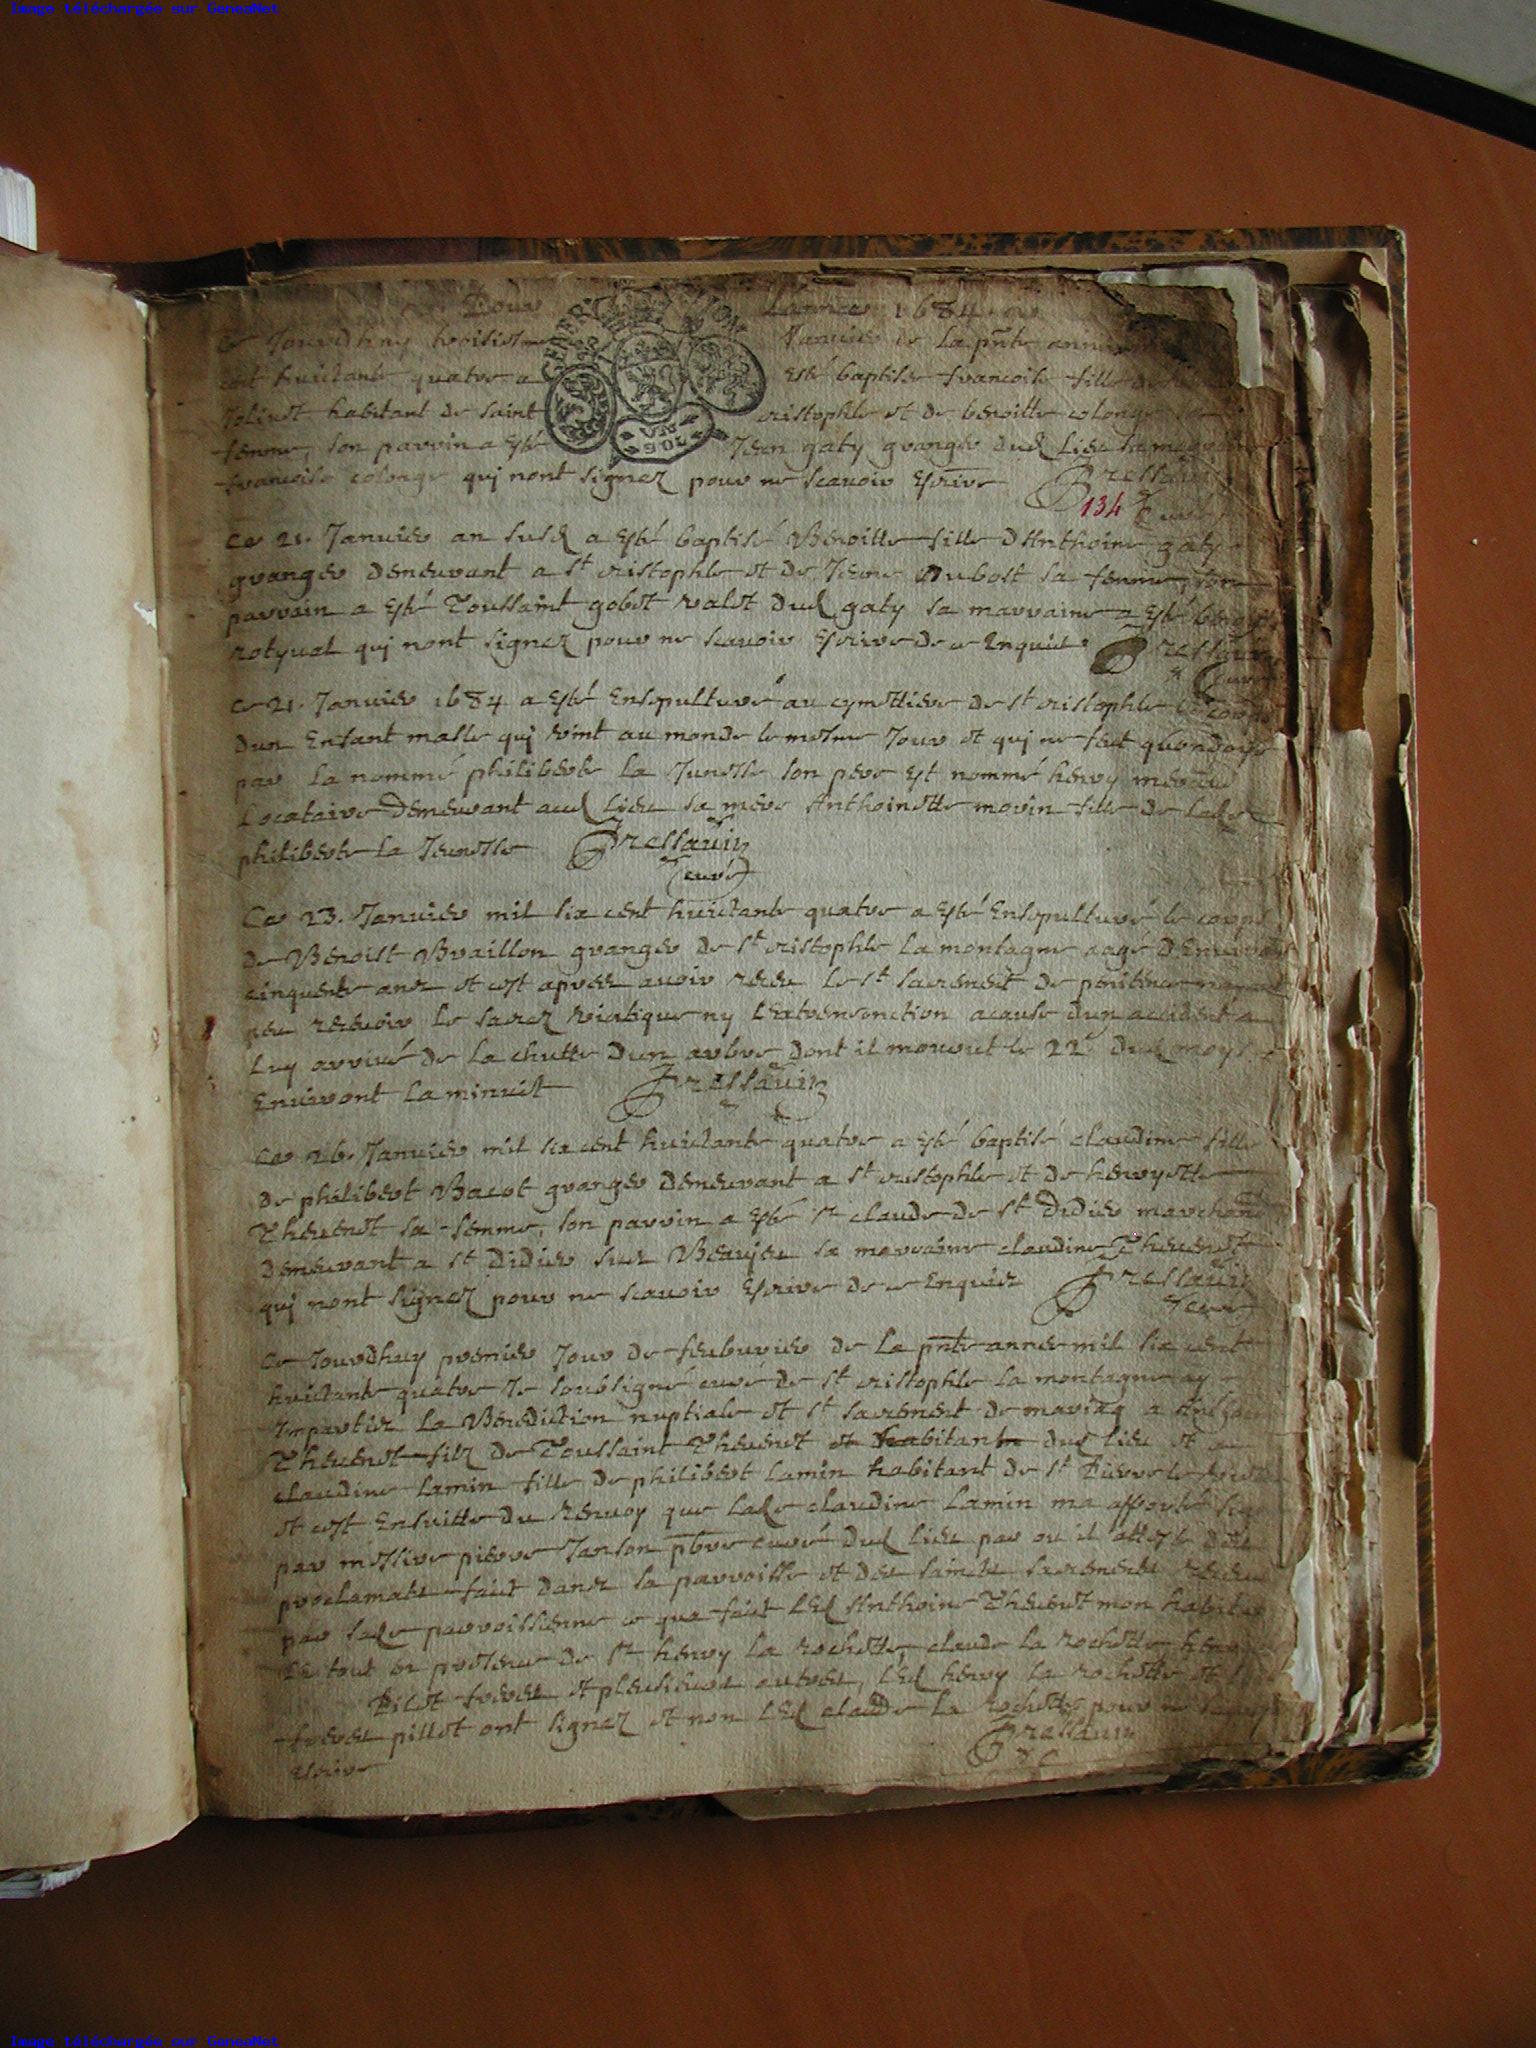 Image téléchargée sur GeneaNet
Pour Lannee 1684
Ce Jourdhuy troisiesme Janvier de la pnte annee
cent huictante quatre a esté baptisée francoise fille
Jolivet habitant de saint cristophle et de benoitte colonge sa
femme, son parrin a esté Jean gaty granger dud lieu sa marraine
francoise colonge qui nont signez pour ne scavoir escrire Bressauin
134 curé
Ce 21. Janvier an susd a esté baptisé Benoitte fille d'Anthoine gaty
granger demeurant a st cristophle et de Jeane Dubost sa femme, son
parrain a esté Toussaint gobet valet dud gaty sa marraine a esté benoite
qui nont signez pour ne scavoir escrire de ce Enquit Bressauin
curé
Ce 21. Janvier 1684 a esté Ensepulturé au cymettiere de st cristophle le corps
dun Enfant masle qui vint au monde le mesme Jour et qui ne feut quondoyé
par la nommé philiberte la Junesse son pere est nommé henry
Locataire Demeurant aud Lieu sa mere Anthoinette morin fille de lade
philiberte la Jeunesse Bressauin
(curé)
Ce 23. Janvier mil six cent huictante quatre a esté Ensepulturé le corps
de Benoist Braillon granger de st cristophle la montagne aagé D'Environ
cinquente ans et cest apres avoir receu le st sacrement de penitence nayant
peu recevoir le sacrez viatique ny l'Extremonction a cause dun accident a
luy arrivé de la chutte dun arbre dont il mourut le 22e dud moys
Environt la minuit Bressauin
Ce 26. Janvier mil six cent huictante quatre a esté baptisé claudine fille
de philibert Bacot granger demeurant a st cristophle et de henryette
Thevenet sa femme, son parrin a esté sr claude de st Didier marchand
demeurant a st Didier sur Beaujeu sa marraine claudine Thevenet
qui nont signez pour ne scavoir Escrire de ce Enquiz Bressauin
curé
Ce Jourdhuy premier Jour de feubvrier de la pnte annee mil six cent
huictante quatre Je soubsigné curé de st cristophle la montagne ay
Impartir la Benediction nuptiale et st sacrement de mariag a Anthoine
Thevenet filz de Toussaint Thevenet et habitant dud lieu et a
claudine Lamin fille de philibert Lamin habitant de st Pierre le vieux
et cest Ensuitte du Renvoy que lade claudine Lamin ma apporté signé
par messire pierre Janson pbre curé dud lieu par ou il atteste des
proclamats fait dans sa parroisse et des saincts sacrements receu
par sade parroissienne ce qua fait led Anthoine Thevenet mon habitant
le tout en presence de sr henry la rochette, claude la rochette
Pilot freres et pleusieurs autres, led henry la rochette et
freres pillot ont signez et non led claude la rochette pour ne scavoir
escrire Bressauin
Image téléchargée sur GeneaNet